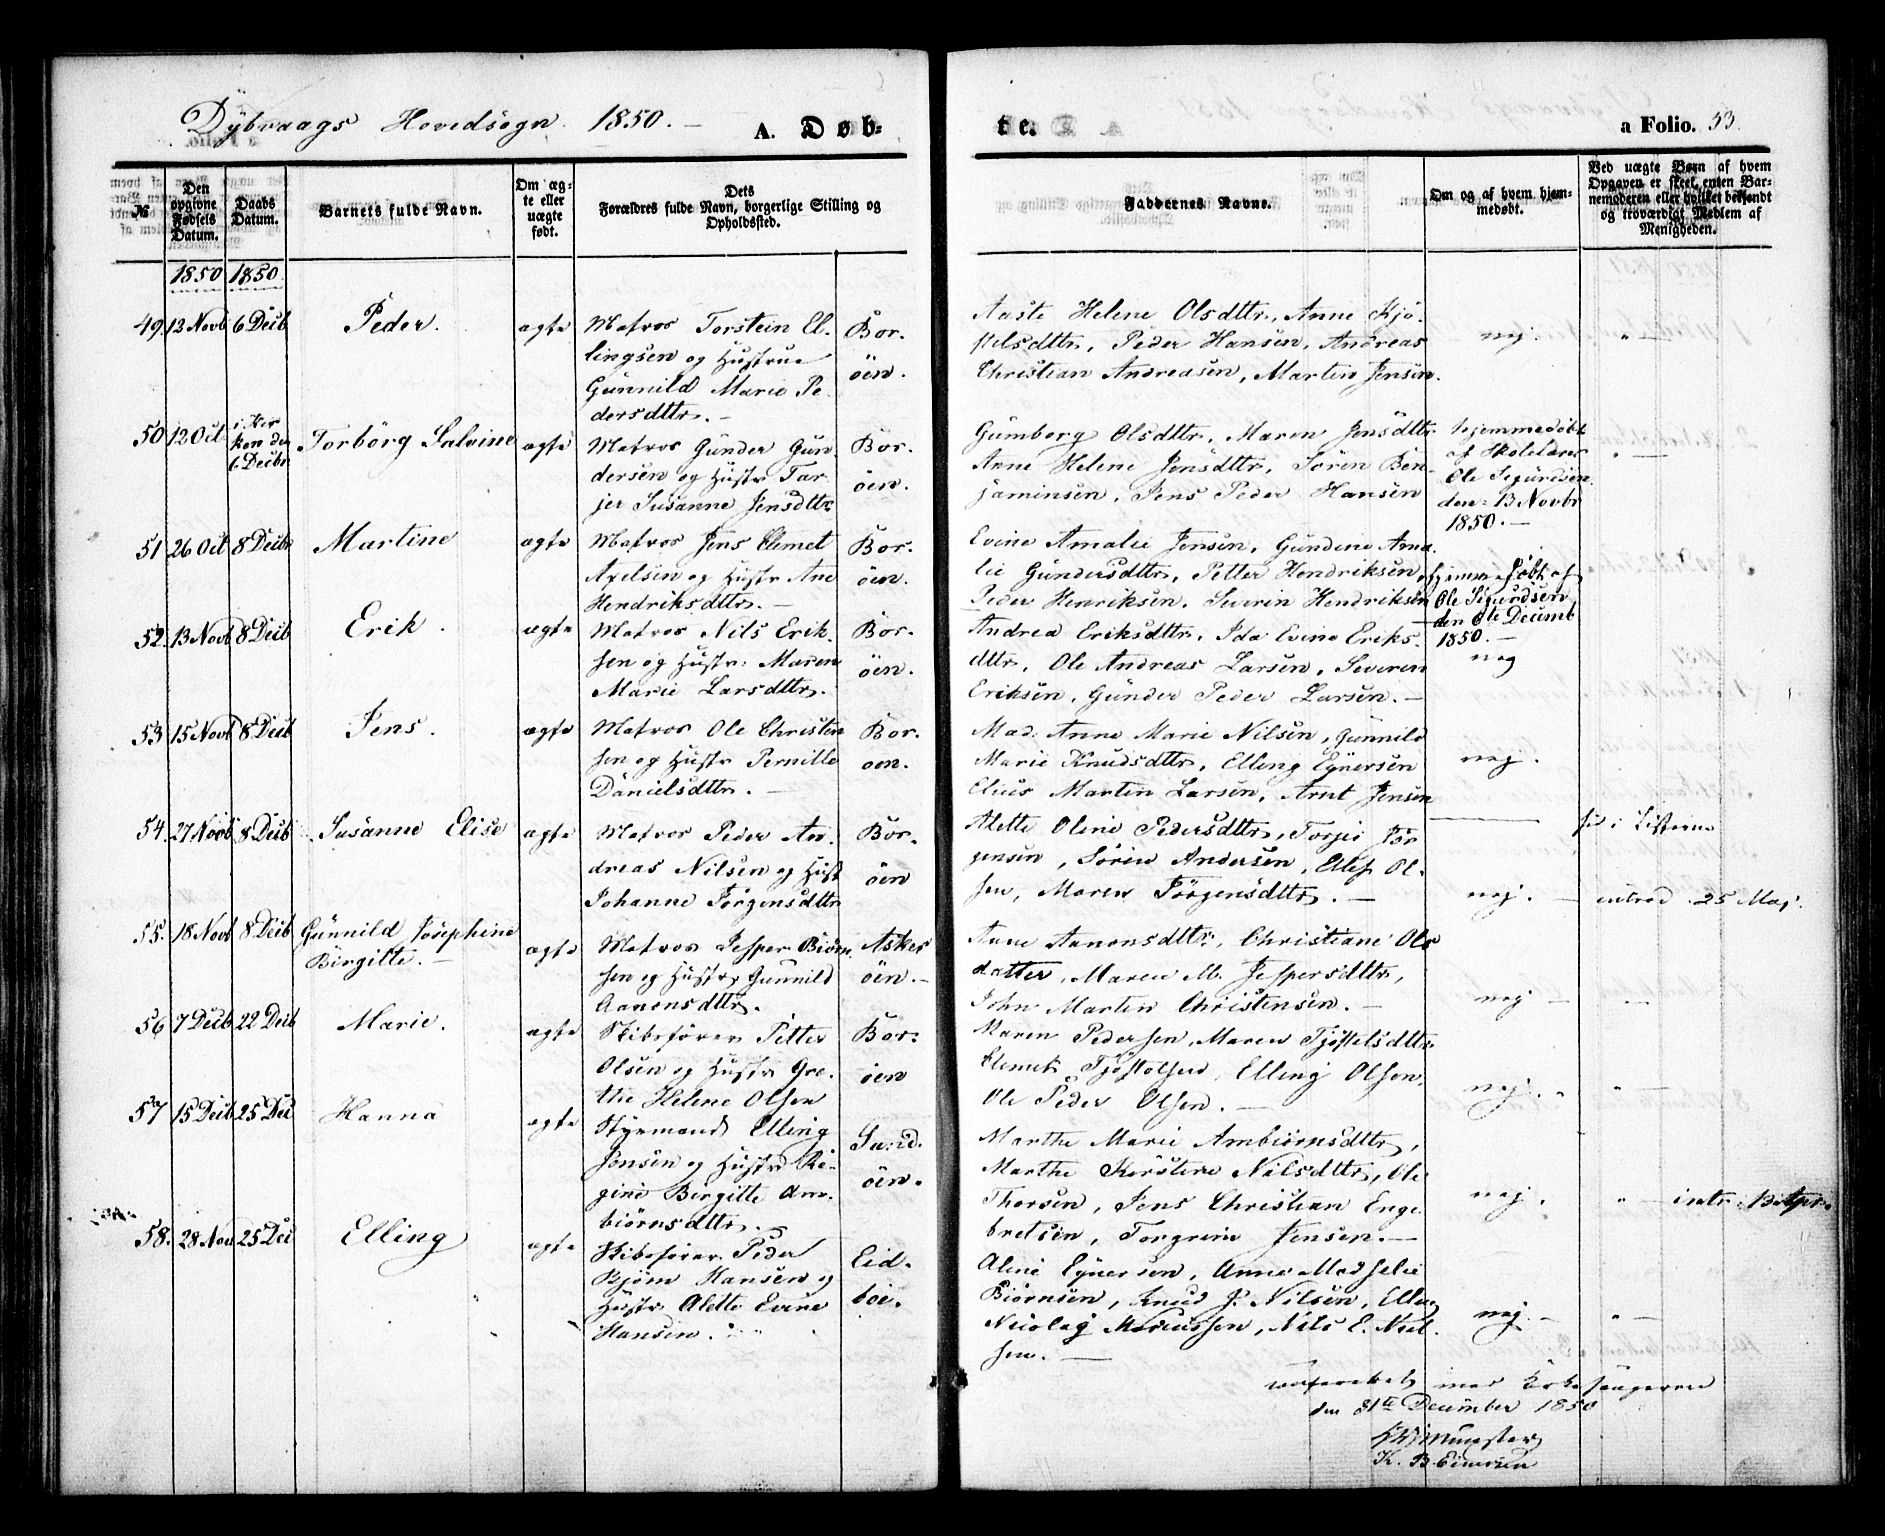 Dybvaags Hovedsogn 1850. — A. Døb-
te. a Folio. 53.
№
Den opgivne Fødsels Datum.
Daabs Datum.
Barnets fulde Navn.
Om ægte eller uægte født.
Dets Forældres fulde Navn, borgerlige Stilling og Opholdssted.
Faddernes Navne.
Om og af hvem hjemmedøbt.
Ved uægte Børn af hvem Opgaven er skeet, enten Barnemoderen eller hvilket bekjendt og troværdigt Medlem af Menigheden.
1850 1850
49. 12 Novb 6 Decb Peder. ægte
Matros Torstein El-
lingsen og Hustrue
Gunnild Marie Pe-
dersdttr. —
Bor-
öen.
Aaste Helene Olsdttr, Anne Kjö-
stelsdttr, Peder Hansen, Andreas
Christian Andreasen, Martin Jensen.
nej. " —
50. 12 Oct i Kir
ken den
6 Decbr
Torbörg Salvine ægte
Matros Gunder Gun
dersen og Hustr Tar-
jer Susanne Jensdttr
Bor-
öen.
Gumborg Olsdttr, Maren Jensdttr
Anne Helene Jensdttr, Sören Ben-
jaminsen, Jens Peder Hansen
Hjemmedöbt
af Skolelærer
Ole Sigurdsen
den 13 Novbr
1850. —
" —
51. 26 Oct 8 Decbr Martine ægte
Matros Jens Clemet
Axelsen og Hustr Ane
Hendriksdttr. —
Bor-
öen.
Evine Amalie Jensen, Gundene Ama-
lie Gundersdttr, Petter Hendriksen,
Peder Henriksen, Severin Hendriksen
hjemmedøbt af
Ole Sigurdsen
den 6te Decemb
1850. —
52. 13 Novb 8 Decb Erik. ægte
Matros Nils Erik-
sen og Hustr: Maren
Marie Larsdttr.
Bor-
öen.
Andrea Eriksdttr, Ida Evine Eriks-
dttr, Ole Andreas Larsen, Severin
Eriksen, Gunder Peder Larsen. —
nej
53. 15 Novb 8 Decb Jens. ægte
Matros Ole Christen
sen og Hustr Pernille
Danielsdttr. —
Bor-
öen.
Mad: Anne Marie Nilsen, Gunnild
Marie Knudsdttr, Elling Eynersen
Elius Martin Larsen, Arnt Jensen
nej.
54. 27 Novb 8 Decb Susanne Elise ægte
Matros Peder An-
dreas Nilsen og Hust
Johanne Törgensdttr
Bor-
öen
Alette Oline Pedersdttr, Torjei Jör
gensen, Sören Andersen, Ellef Ol-
sen, Maren Törgensdttr. —
nej. —
i Listerne
indtråd 25 Maj.
55. 18 Novb 8 Decb Gunnild Josephine
Birgitte. —
ægte
Matros Jesper Biörn
sen og Hustr Gunnild
Aanonsdttr.
Asker
öen. —
Anne Aanonsdttr, Christiane Ols
datter, Maren M. Jespersdttr,
John Martin Christensen. —
nej — —
56 7 Decb 22 Decb Marie. ægte
Skibsförer Petter
Olsen og Hustr Gre-
the Helene Olsen
Bor-
öen
Maren Pedersen, Maren Tjöstelsdttr
Clemet Tjöstolsen, Elling Olsen,
Ole Peder Olsen. —
nej. " —
57 15 Decb 25 Dec Hanna ægte
Styrmand Elling
Jensen og Hustr Re-
gine Birgitte Am-
biörnsdttr. —
Sand-
öen.
Marthe Marie Ambiörnsdttr,
Marthe Kirstine Nilsdttr, Ole
Thorsen, Jens Christian Enge
bretsen, Torgrim Jensen. —
nej. " — intr. 13 Apr.
58. 28 Nov 25 Dec Elling ægte
Skibsförer Peder
Bjöm Hansen og
Hustr Alette Evine
Hansen.
Eid-
boe.
Aline Eynersen, Anne Madselie
Biörnsen, Knud P. Nilsen, Elling
Nicolaj Mariussen, Nils E. Niel-
sen. —
nej. — " —
Confereret med Kirkesangeren
den 31te December 1850
Münster
K. B. Einersen